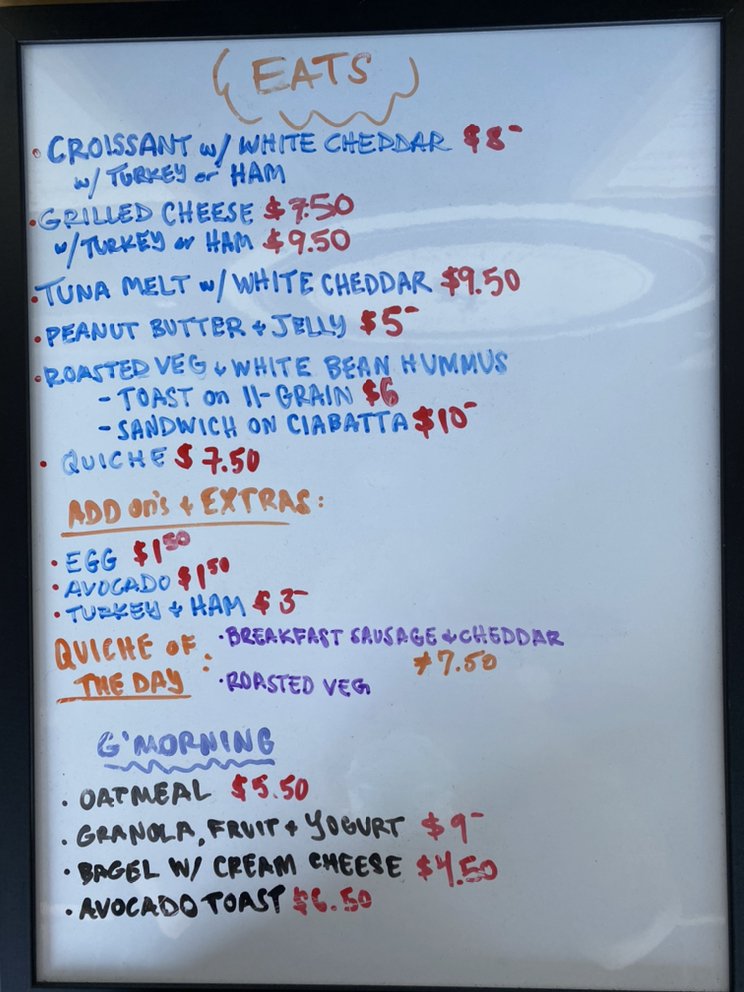 EATS
• CROISSANT w/ WHITE CHEDDAR $8-
w/ TURKEY or HAM
• GRILLED CHEESE $7.50
w/TURKEY or HAM $9.50
• TUNA MELT w/ WHITE CHEDDAR $9.50
• PEANUT BUTTER + JELLY $5-
• ROASTED VEG + WHITE BEAN HUMMUS
- TOAST on 11-GRAIN $6
- SANDWICH ON CIABATTA $10-
• QUICHE $7.50
ADD on's + EXTRAS:
• EGG $1.50
• AVOCADO $1.50
• TURKEY + HAM $3-
QUICHE OF THE DAY :
• BREAKFAST SAUSAGE + CHEDDAR
$7.50
• ROASTED VEG
G'MORNING
• OATMEAL $5.50
• GRANOLA, FRUIT + YOGURT $9-
• BAGEL W/ CREAM CHEESE $4.50
• AVOCADO TOAST $6.50